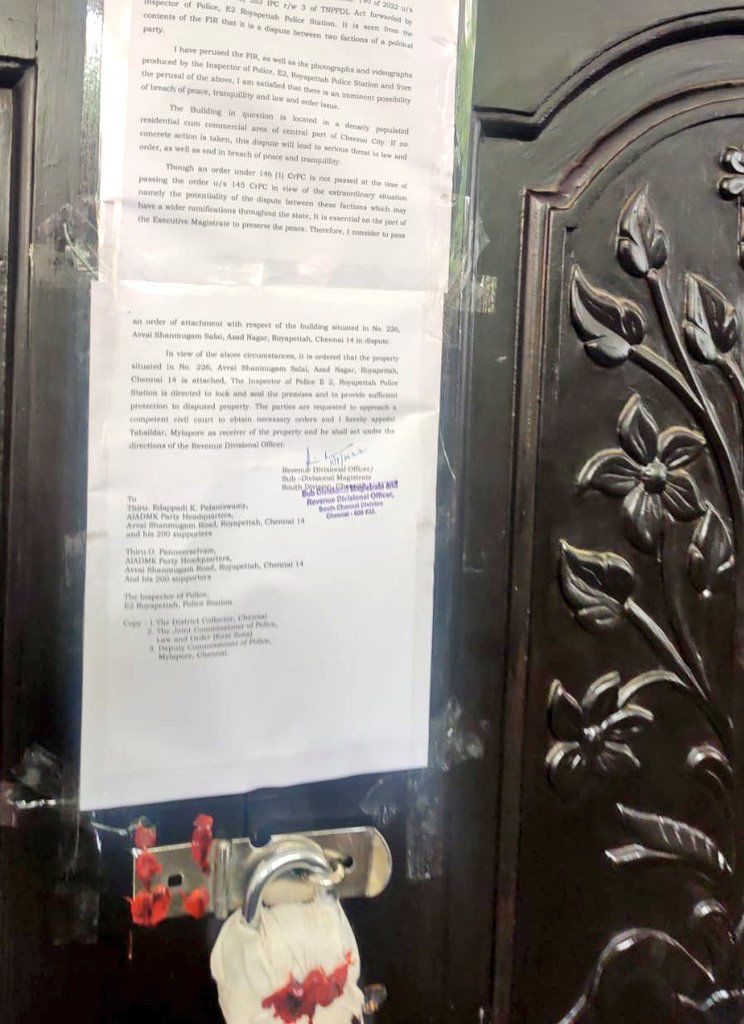 of 2022 u/s
353 IPC r/w 3 of TNPPDL Act forwarded by
Inspector of Police, E2 Royapettah Police Station. It is seen from the
contents of the FIR that it is a dispute between two factions of a political
party.
I have perused the FIR, as well as the photographs and videographs
produced by the Inspector of Police, E2, Royapettah Police Station and from
the perusal of the above, I am satisfied that there is an imminent possibility
of breach of peace, tranquillity and law and order issue.
The Building in question is located in a densely populated
residential cum commercial area of central part of Chennai City. If no
concrete action is taken, this dispute will lead to serious threat to law and
order, as well as end in breach of peace and tranquillity.
Though an order under 146 (1) CrPC is not passed at the time of
passing the order u/s 145 CrPC in view of the extraordinary situation
namely the potentiality of the dispute between these factions which may
have a wider ramifications throughout the state, It is essential on the part of
the Executive Magistrate to preserve the peace. Therefore, I consider to pass
an order of attachment with respect of the building situated in No. 226,
Avvai Shanmugam Salai, Asad Nagar, Royapettah, Chennai 14 in dispute.
In view of the above circumstances, it is ordered that the property
situated in No. 226, Avvai Shanmugam Salai, Asad Nagar, Royapettah,
Chennai 14 is attached, The Inspector of Police E 2, Royapettah Police
Station is directed to lock and seal the premises and to provide sufficient
protection to disputed property. The parties are requested to approach a
competent civil court to obtain necessary orders and I hereby appoint
Tahsildar, Mylapore as receiver of the property and he shall act under the
directions of the Revenue Divisional Officer.
Revenue Divisional Officer/
Sub -Divisional Magistrate
South Division, Chennai
Sub Divisional Magistrate and
Revenue Divisional Officer,
South Chennai Division
Chennai - 600 032.
To
Thiru. Edappadi K. Palaniswamy,
AIADMK Party Headquarters,
Avvai Shanmugam Road, Royapettah, Chennai 14
and his 200 supporters
Thiru O. Panneerselvam,
AIADMK Party Headquarters,
Avvai Shanmugam Road, Royapettah, Chennai 14
And his 200 supporters
The Inspector of Police,
E2 Royapettah, Police Station
Copy : 1. The District Collector, Chennai
2. The Joint Commissioner of Police,
Law and Order (East Zone)
3. Deputy Commissioner of Police,
Mylapore, Chennai.